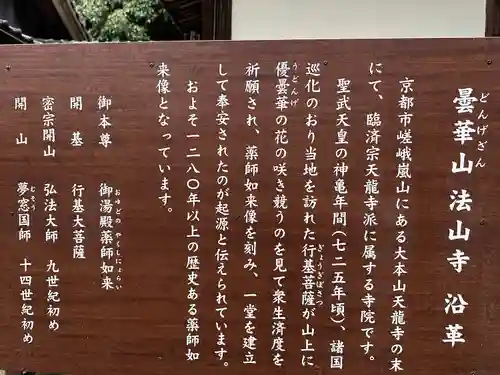 曇華山 法山寺 沿革
どんげざん
京都市嵯峨嵐山にある大本山天龍寺の末
にて、臨済宗天龍寺派に属する寺院です。
聖武天皇の神亀年間(七二五年頃)、諸国
巡化のおり当地を訪れた行基菩薩が山上に
ぎょうきぼさつ
優曇華の花の咲き競うのを見て衆生済度を
うどんげ
祈願され、薬師如来像を刻み、一堂を建立
して奉安されたのが起源と伝えられています。
およそ一二八〇年以上の歴史ある薬師如
来像となっています。
御本尊 御湯殿薬師如来
おゆどの やくしにょらい
開基 行基大菩薩
密宗開山 弘法大師 九世紀初め
開山 夢窓国師 十四世紀初め
むそう